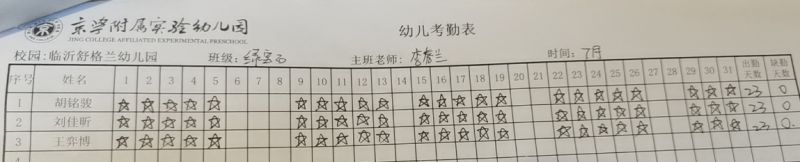 京学附属实验幼儿园 幼儿考勤表
JING COLLEGE AFFILIATED EXPERIMENTAL PRESCHOOL
校园:临沂舒格兰幼儿园 班级:绿宝石 主班老师: 李 兰 时间: 7月
序号 姓名 1 2 3 4 5 6 7 8 9 10 11 12 13 14 15 16 17 18 19 20 21 22 23 24 25 26 27 28 29 30 31 出勤天数 缺勤天数
1 胡铭骏 ☆ ☆ ☆ ☆ ☆ ☆ ☆ ☆ ☆ ☆ ☆ ☆ ☆ ☆ ☆ ☆ ☆ ☆ ☆ ☆ ☆ ☆ ☆ 23 0
2 刘佳昕 ☆ ☆ ☆ ☆ ☆ ☆ ☆ ☆ ☆ ☆ ☆ ☆ ☆ ☆ ☆ ☆ ☆ ☆ ☆ ☆ ☆ ☆ ☆ 23 0
3 王弈博 ☆ ☆ ☆ ☆ ☆ ☆ ☆ ☆ ☆ ☆ ☆ ☆ ☆ ☆ ☆ ☆ ☆ ☆ ☆ ☆ ☆ ☆ ☆ 23 0